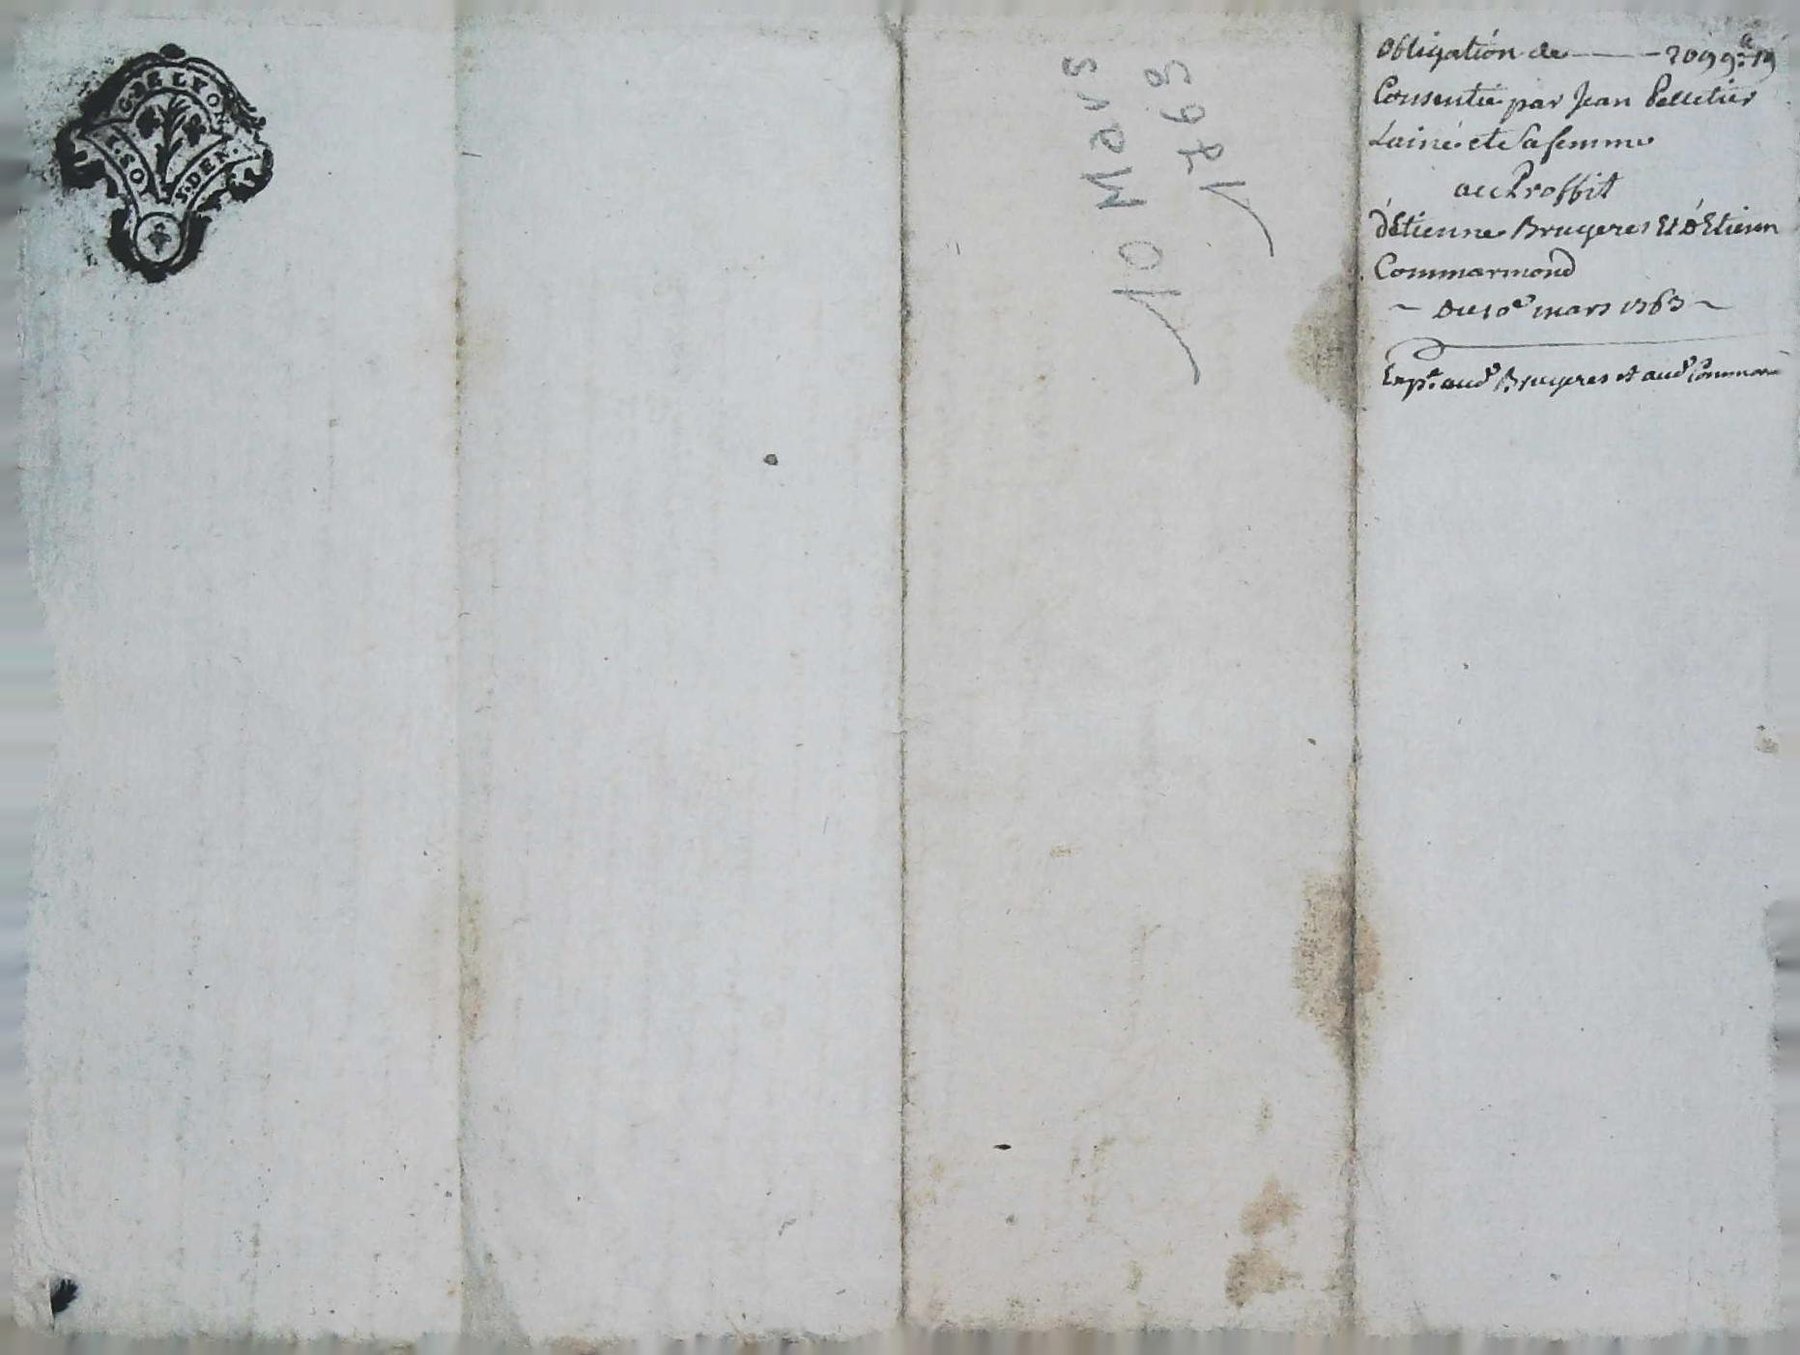 G. DE LYON
1. SOL 4. DEN.
10 Mars
1763
Obligation de —— 2099# 19
Consentie par Jean Pelletier
Lainé et Sa femme
au Proffit
d'Etienne Brugeres Et d'Etienn
Commarmond
~ Du 10e mars 1763 ~
Exp. aud. Brugeres et aud. Commar